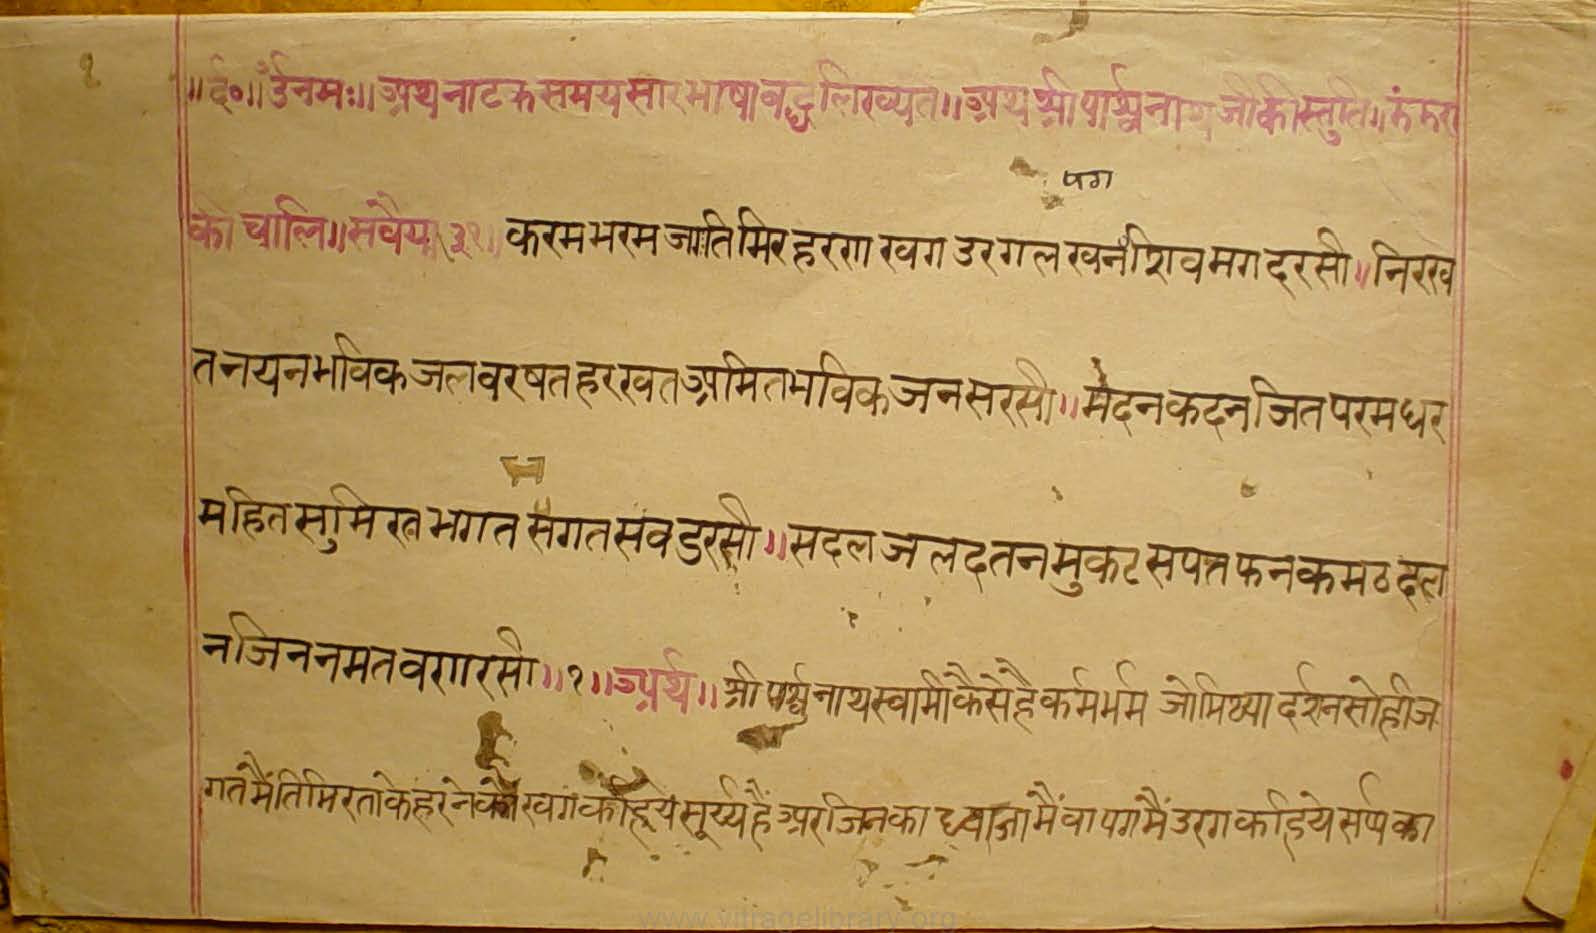 १
॥ र्द०॥ ॐ नमः॥ अथ नाटक समयसार भाषा बद्ध लिख्यते॥ अथ श्री पार्श्वनाथ जी की स्तुति॥ झंझरा
पग
की चालि॥ सवैया ३१॥ करम भरम जग तिमिर हरण खग उरग लखन शिव मग दरसी॥ निरख
त नयन भविक जल वरषत हरखत अमित भविक जन सरसी॥ मदन कदन जित परम धर
म हित सुमिरत भगत भगत सब डरसी॥ सजल जलद तन मुकट सपत फन कमठ दल
न जिन नमत वणारसी॥१॥ अर्थ॥ श्री पार्श्वनाथ स्वामी कैसे है कर्म भर्म जो मिथ्या दर्शन सो ही ज
गत मैं तिमिर ता के हरने कौ खग कहिये सूर्य्य हैं अर जिन का ध्वजा मैं वा पग मैं उरग कहिये सर्प्प का
www.vitragelibrary.org